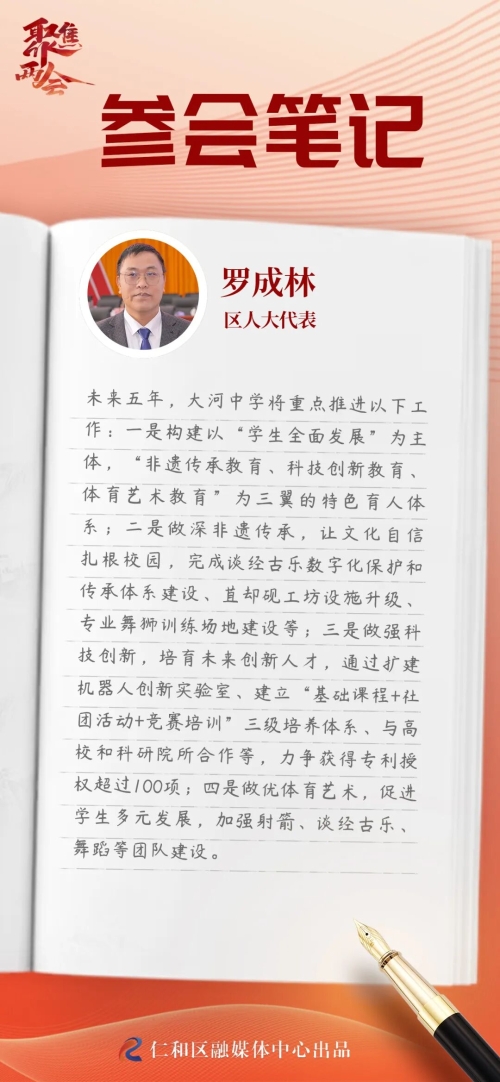 聚焦
两会
参会笔记
罗成林
区人大代表
未来五年，大河中学将重点推进以下工
作：一是构建以“学生全面发展”为主
体，“非遗传承教育、科技创新教育、
体育艺术教育”为三翼的特色育人体
系；二是做深非遗传承，让文化自信
扎根校园，完成谈经古乐数字化保护和
传承体系建设、苴却砚工坊设施升级、
专业舞狮训练场地建设等；三是做强科
技创新，培育未来创新人才，通过扩建
机器人创新实验室、建立“基础课程+社
团活动+竞赛培训”三级培养体系、与高
校和科研院所合作等，力争获得专利授
权超过100项；四是做优体育艺术，促进
学生多元发展，加强射箭、谈经古乐、
舞蹈等团队建设。
仁和区融媒体中心出品